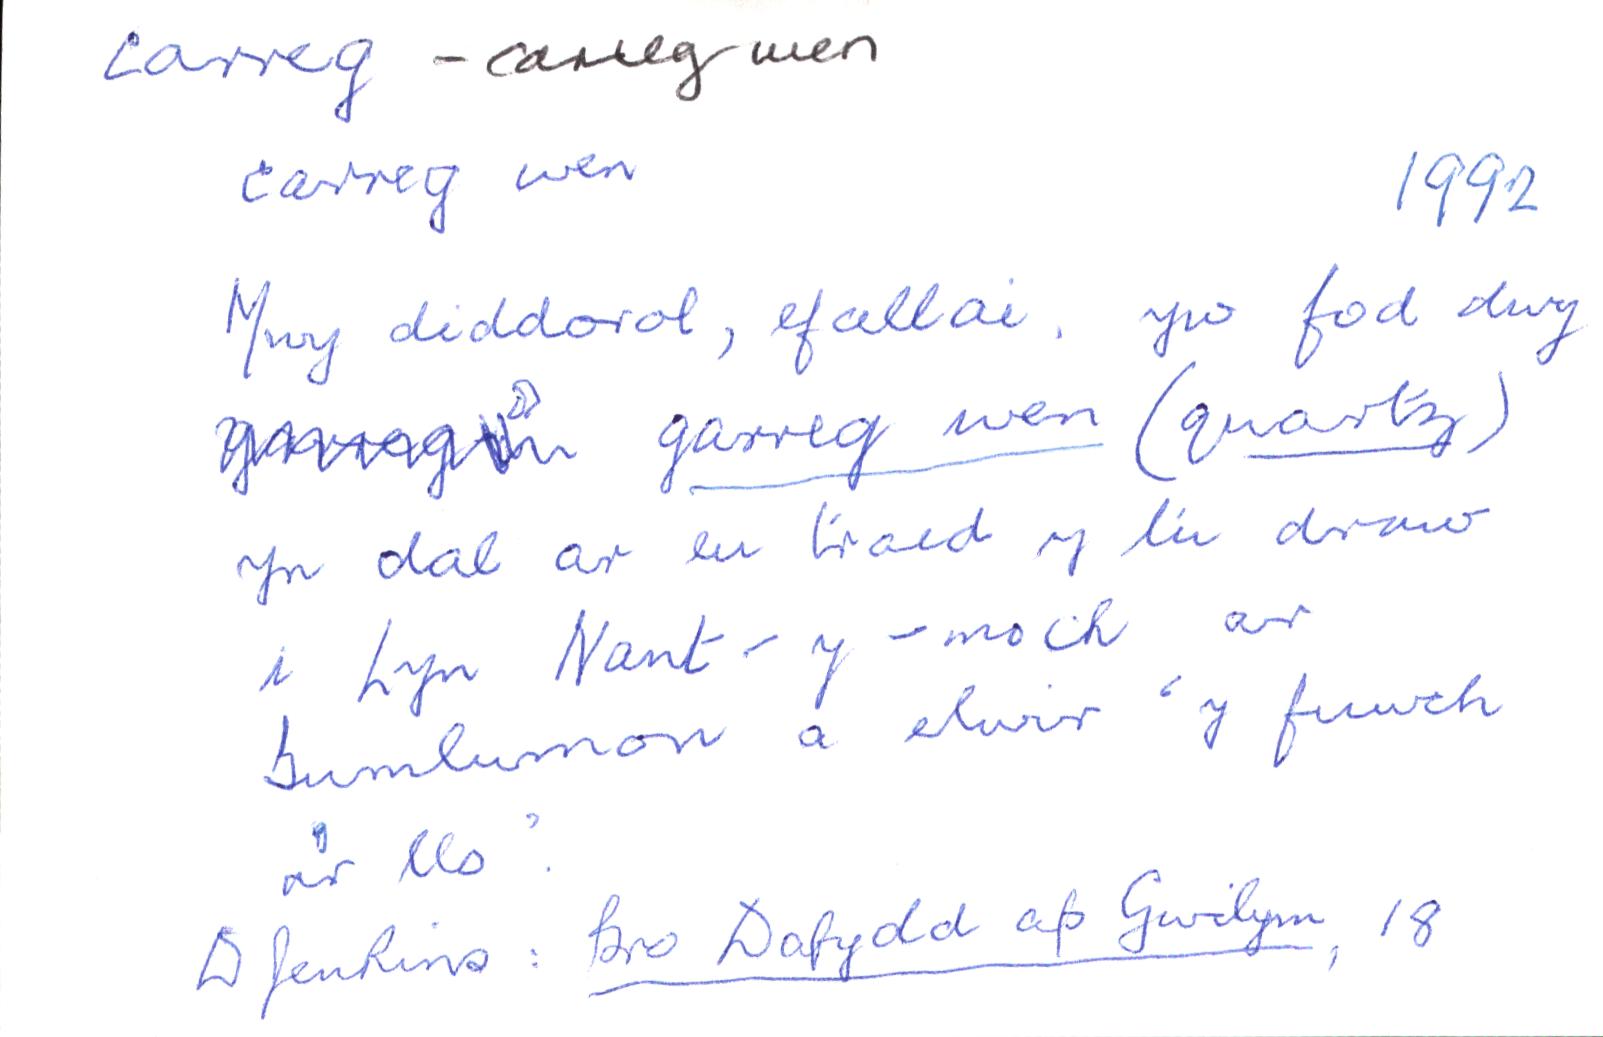 carreg - carreg wen
carreg wen 1992
Mwy diddorol, efallai, yw fod dwy
garreg wen (quartz)
yn dal ar eu traed y tu draw
i Lyn Nant-y-moch ar
bumlumon a elwir 'y fuwch
a'r llo'.
D Jenkins: Bro Dafydd ap Gwilym, 18